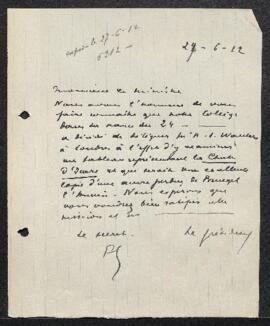 copié le 27-6-12
6212 -
27-6-12
Monsieur le ministre
Nous avons l'honneur de vous
faire connaître que notre Collège
dans sa séance du 24
a décidé de déléguer M. A. J. Wauters
à Londres à l'effet d'y examiner
un tableau représentant la Chute
d'Icare et que serait une excellente
copie d'une œuvre perdue de Bruegel
l'ancien. Nous espérons que
vous voudrez bien ratifier cette
mission et
Le secret.
Le président